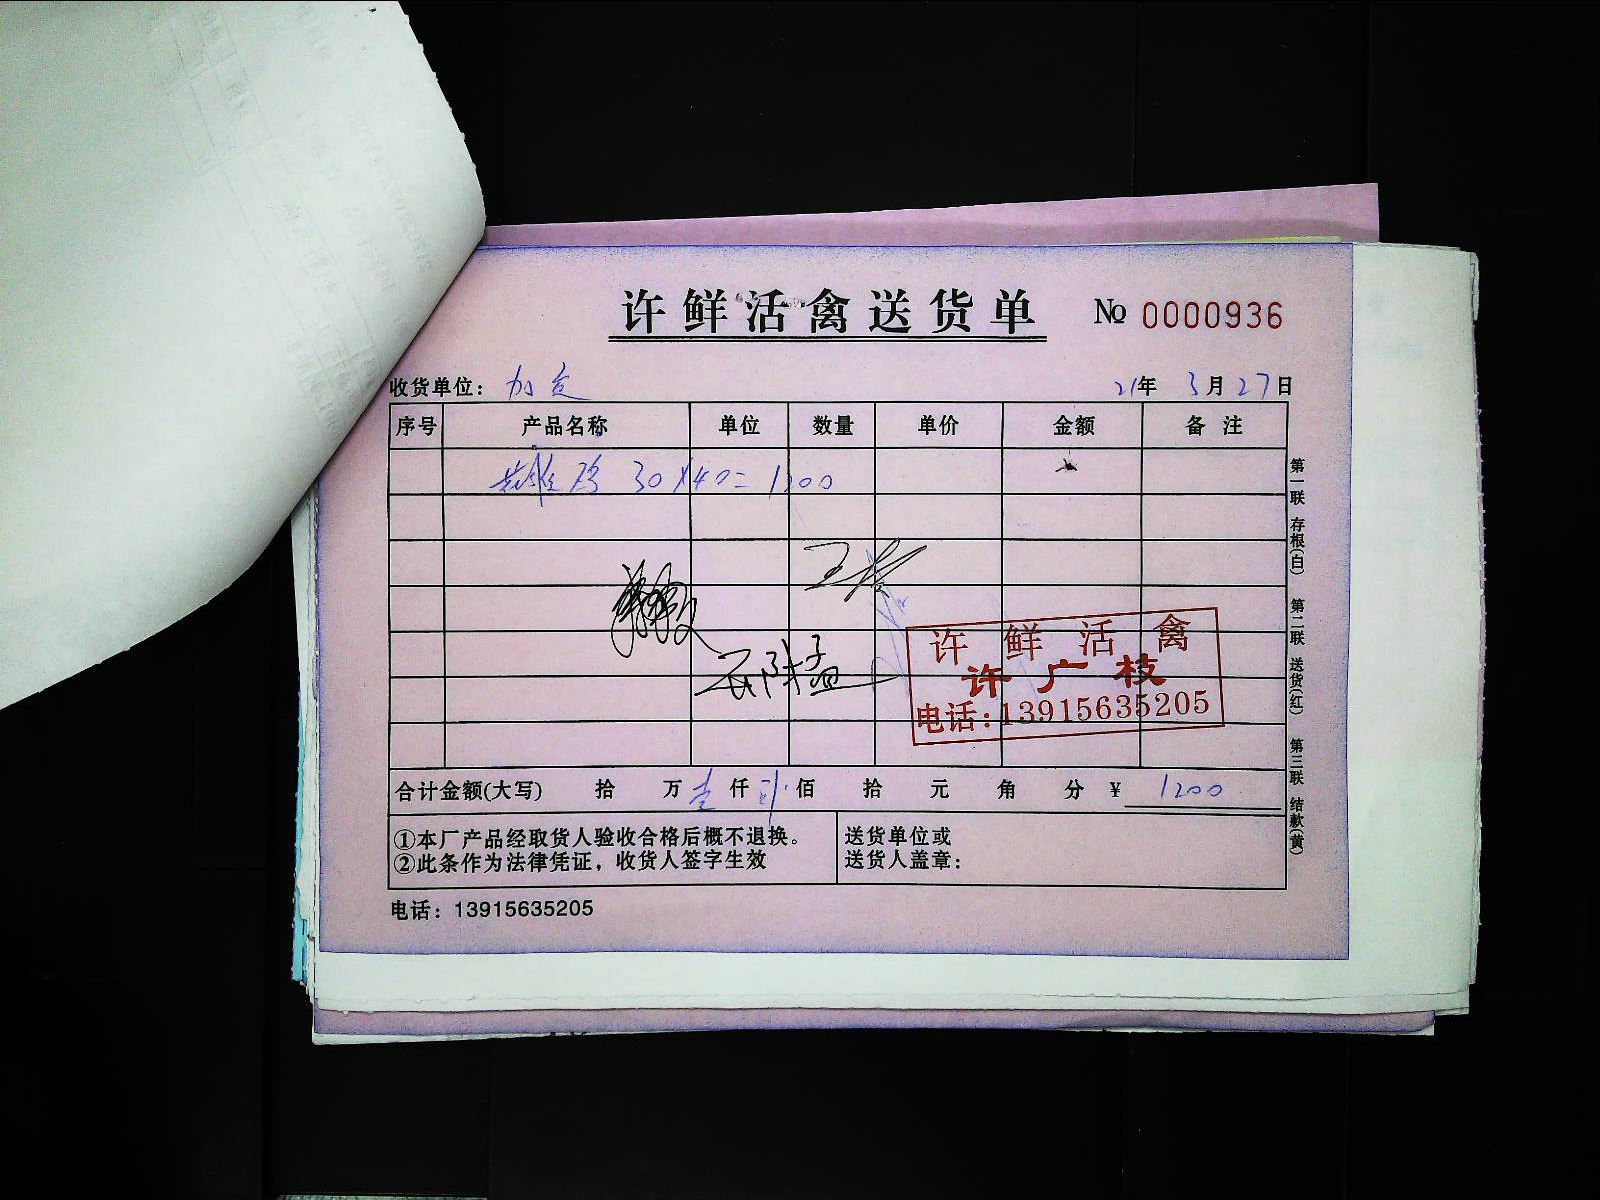 许鲜活禽送货单 № 0000936
收货单位： 21年 3月27日
序号 产品名称 单位 数量 单价 金额 备注
鸡 30×40=1200
许鲜活禽
许广枝
电话：13915635205
合计金额(大写) 拾 万壹仟 佰 拾 元 角 分 ¥ 1200
①本厂产品经取货人验收合格后概不退换。
②此条作为法律凭证，收货人签字生效
送货单位或
送货人盖章：
电话：13915635205
第一联 存根(白) 第二联 送货(红) 第三联 结款(黄)